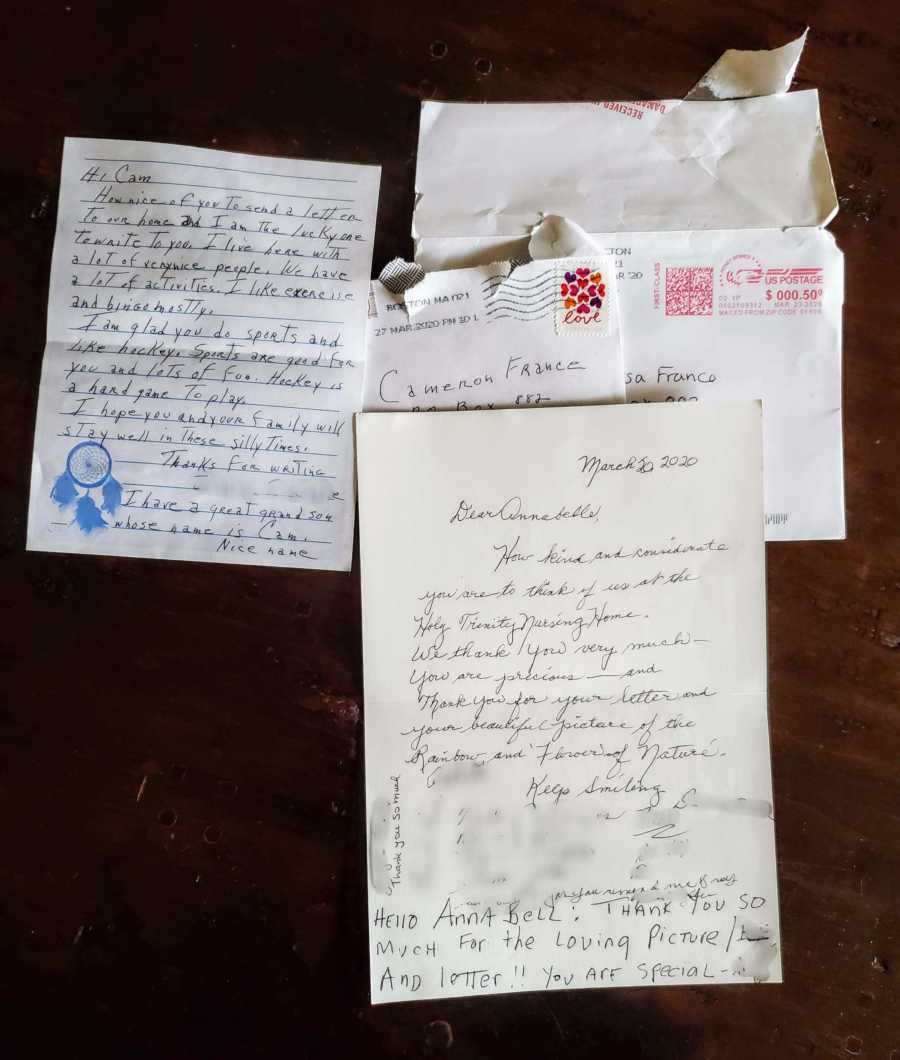 Hi Cam
How nice of you to send a letter
to our home and I am the lucky one
to write to you. I live here with
a lot of very nice people. We have
a lot of activities. I like exercise
and bingo mostly.
I am glad you do sports and
like hockey. Sports are good for
you and lots of fun. Hockey is
a hard game to play.
I hope you and your family will
stay well in these silly times.
Thanks for writing
I have a great grand son
whose name is Cam.
Nice name
RECEIVED
DAMAGE
BOSTON MA 021
27 MAR 2020 PM 30 L
love
Cameron France
PO Box 882
FIRST-CLASS
US POSTAGE
$ 000.50⁰
02 1P
MAR 23 2020
MAILED FROM ZIP CODE
sa Franco
March 20 2020
Dear Annabelle,
How kind and considerate
you are to think of us at the
Holy Trinity Nursing Home.
We thank you very much—
You are precious — and
Thank you for your letter and
your beautiful picture of the
Rainbow, and Flower of Nature.
Keep Smiling
Thank you so much
HELLO ANNA BELL: THANK YOU SO
MUCH FOR the LOVING PICTURE
AND letter!! YOU ARE SPECIAL-